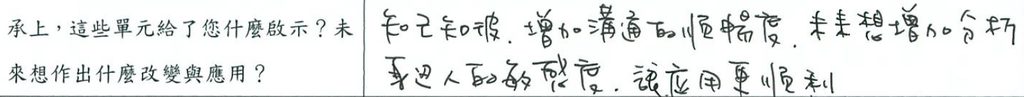 承上，這些單元給了您什麼啟示？未
來想作出什麼改變與應用？
知己知彼，增加溝通的順暢度，未來想增加分析
身邊人的敏感度，讓應用更順利